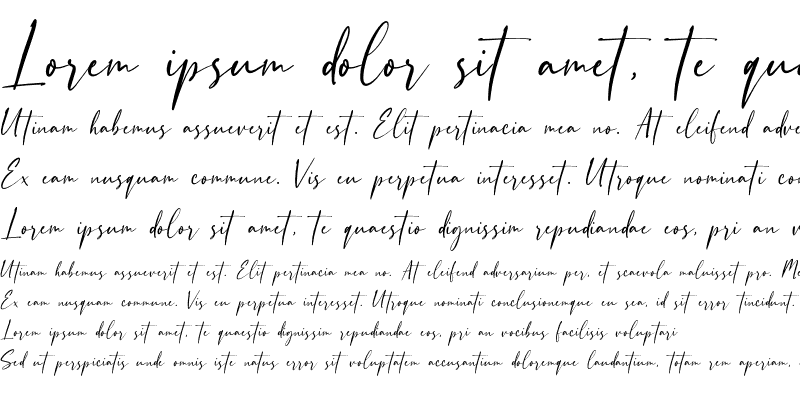 Lorem ipsum dolor sit amet, te
Utinam habemus assueverit et est. Elit pertinacia mea no. At eleifend
Ex eam nusquam commune. Vis eu perpetua interesset. Utroque nominati
Lorem ipsum dolor sit amet, te quaestio dignissim repudiandae eos, pri an
Utinam habemus assueverit et est. Elit pertinacia mea no. At eleifend adversarium per, et scaevola maluisset pro.
Ex eam nusquam commune. Vis eu perpetua interesset. Utroque nominati conclusionemque eu sea, id sit error tincidunt.
Lorem ipsum dolor sit amet, te quaestio dignissim repudiandae eos, pri an vocibus facilisis voluptari
Sed ut perspiciatis unde omnis iste natus error sit voluptatem accusantium doloremque laudantium, totam rem aperiam,